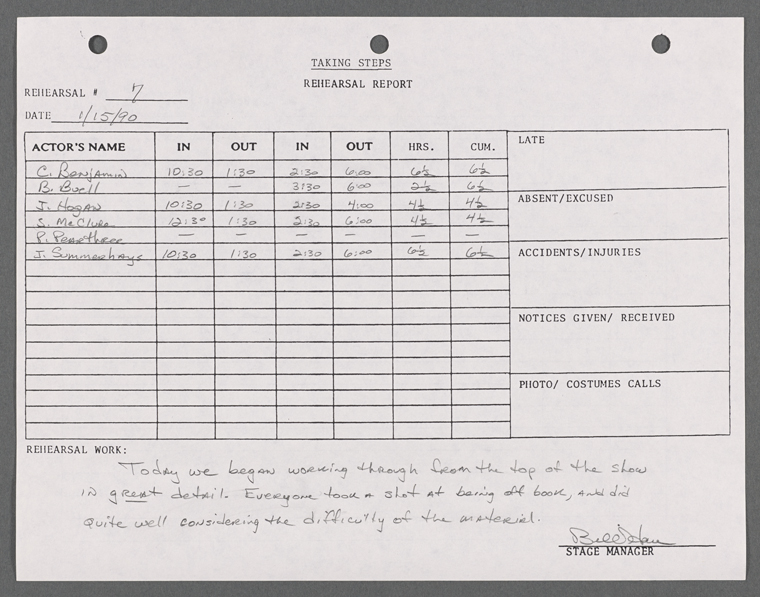 TAKING STEPS
REHEARSAL REPORT
REHEARSAL # 7
DATE 1/15/90
ACTOR'S NAME IN OUT IN OUT HRS. CUM.
C. Benjamin 10:30 1:30 2:30 6:00 6½ 6½
B. Buell — — 3:30 6:00 2½ 6½
J. Hogan 10:30 1:30 2:30 4:00 4½ 4½
S. McClure 12:30 1:30 2:30 6:00 4½ 4½
P. — — — — — —
J. Summerhays 10:30 1:30 2:30 6:00 6½ 6½
LATE
ABSENT/EXCUSED
ACCIDENTS/INJURIES
NOTICES GIVEN/ RECEIVED
PHOTO/ COSTUMES CALLS
REHEARSAL WORK:
Today we began working through from the top of the show
in great detail. Everyone took a shot at being off book, and did
quite well considering the difficulty of the material.
STAGE MANAGER